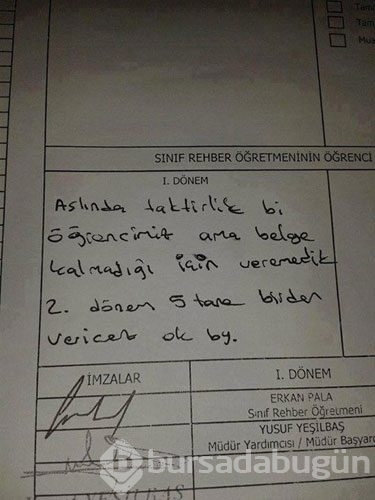 Tami
Tami
Mus
SINIF REHBER ÖĞRETMENİNİN ÖĞRENCİ
I. DÖNEM
Aslında taktirlik bi
öğrencimiz ama belge
kalmadığı için veremedik
2. dönem 5 tane birden
vericez ok by.
İMZALAR
I. DÖNEM
ERKAN PALA
Sınıf Rehber Öğretmeni
YUSUF YEŞİLBAŞ
Müdür Yardımcısı / Müdür Başyard
bursadabugün